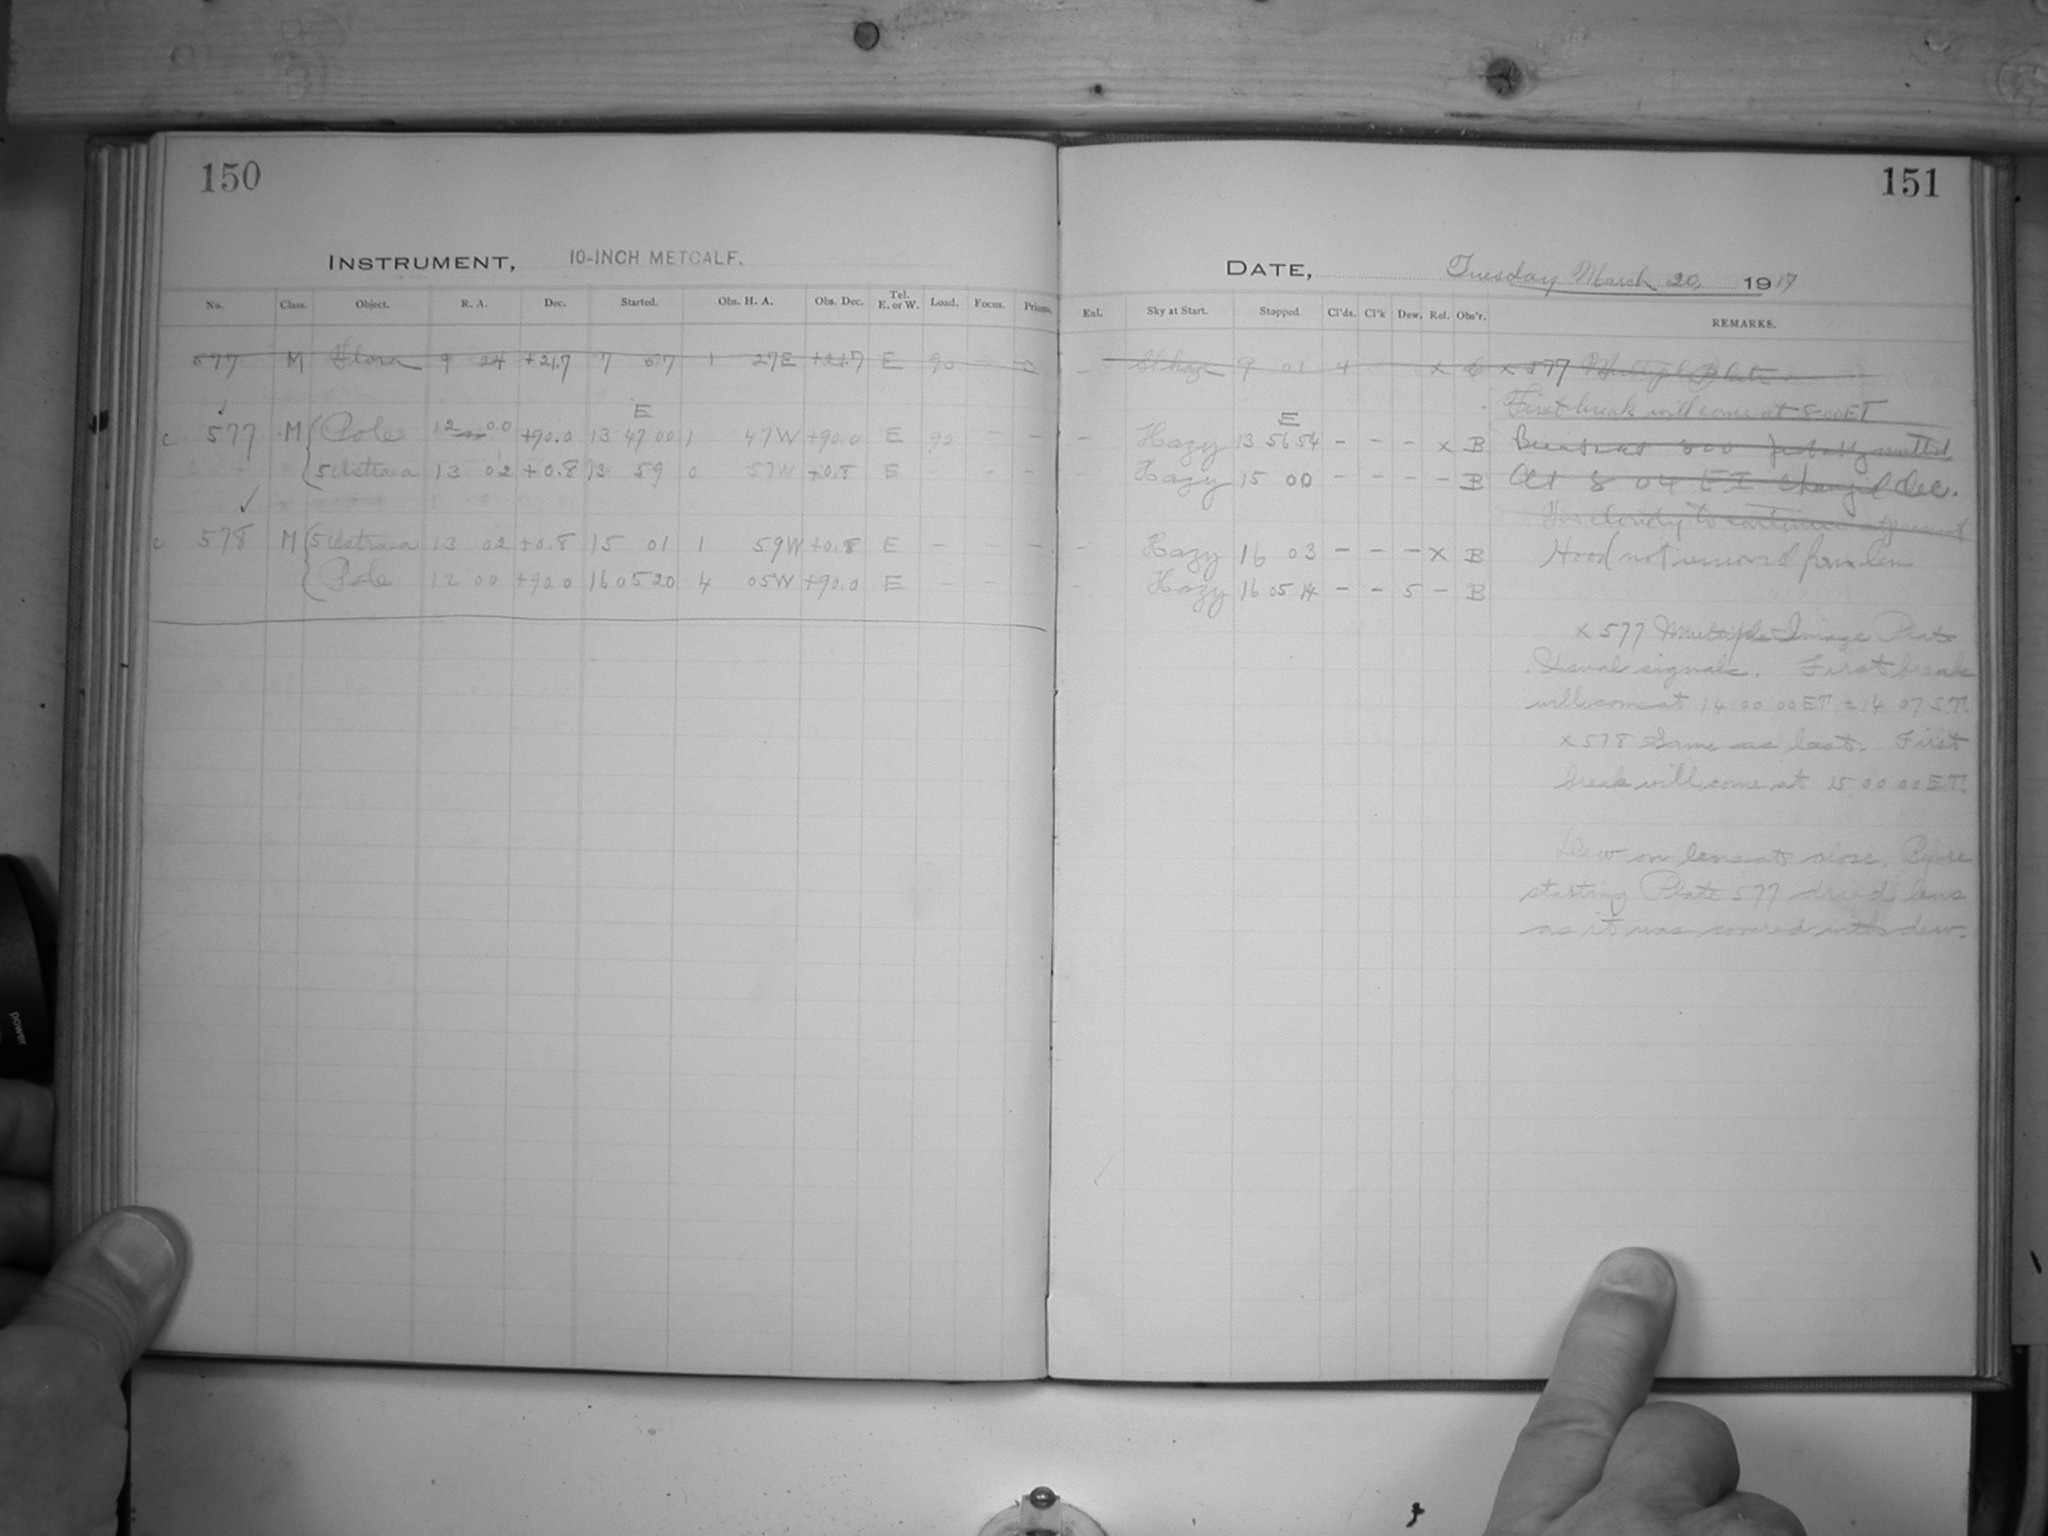 150
INSTRUMENT, 10-INCH METCALF.
No. Class. Object. R. A. Dec. Started. Obs. H. A. Obs. Dec. Tel. E. or W. Load. Focus. Prisms.
577 M Flora 9 24 +21.7 7 57 1 27E +21.7 E 90 — 0
E
c 577 M Pole 12 00 +90.0 13 47 00 1 47W +90.0 E 90 — —
5 Astraea 13 02 +0.8 13 59 0 57W +0.8 E — — —
c 578 M 5 Astraea 13 02 +0.8 15 01 1 59W +0.8 E — — —
Pole 12 00 +90.0 16 05 20 4 05W +90.0 E — — —
151
DATE, Tuesday March 20, 1917
Enl. Sky at Start. Stopped. Cl'ds. Cl'k Dew. Rel. Obs'r. REMARKS.
— St haze 9 01 4 x C x 577 Multiple Plate
First break will come at 8-00 ET
E
— Hazy 13 56 54 — — — x B Break at 800 probably omitted
— Hazy 15 00 — — — — B At 8 04 E.T. changed dec.
Too cloudy to continue
— Hazy 16 03 — — — x B Hood not removed from lens
— Hazy 16 05 14 — — 5 — B
x 577 Multiple Image Plate
Usual signals. First break
will come at 14 00 00 ET = 14 07 S.T.
x 578 Same as last. First
break will come at 15 00 00 E T.
Dew on lens at close. Before
starting Plate 577 dried lens
as it was covered with dew.
power